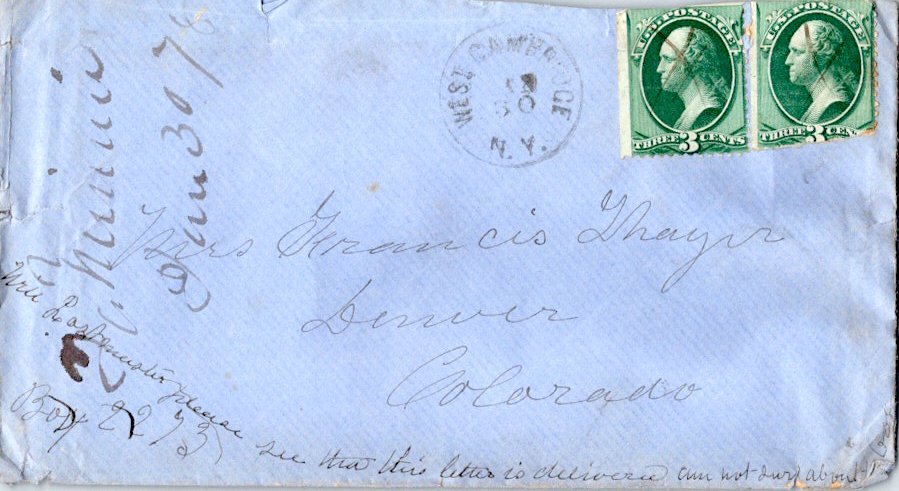 WEST CAMBRIDGE
30
N.Y.
U.S. POSTAGE
THREE 3 CENTS
U.S. POSTAGE
THREE 3 CEN
Jan 30 76
Mrs Francis Thayer
Denver
Colorado
Postmaster please
see that this letter is delivered am not sure about
Box 2273